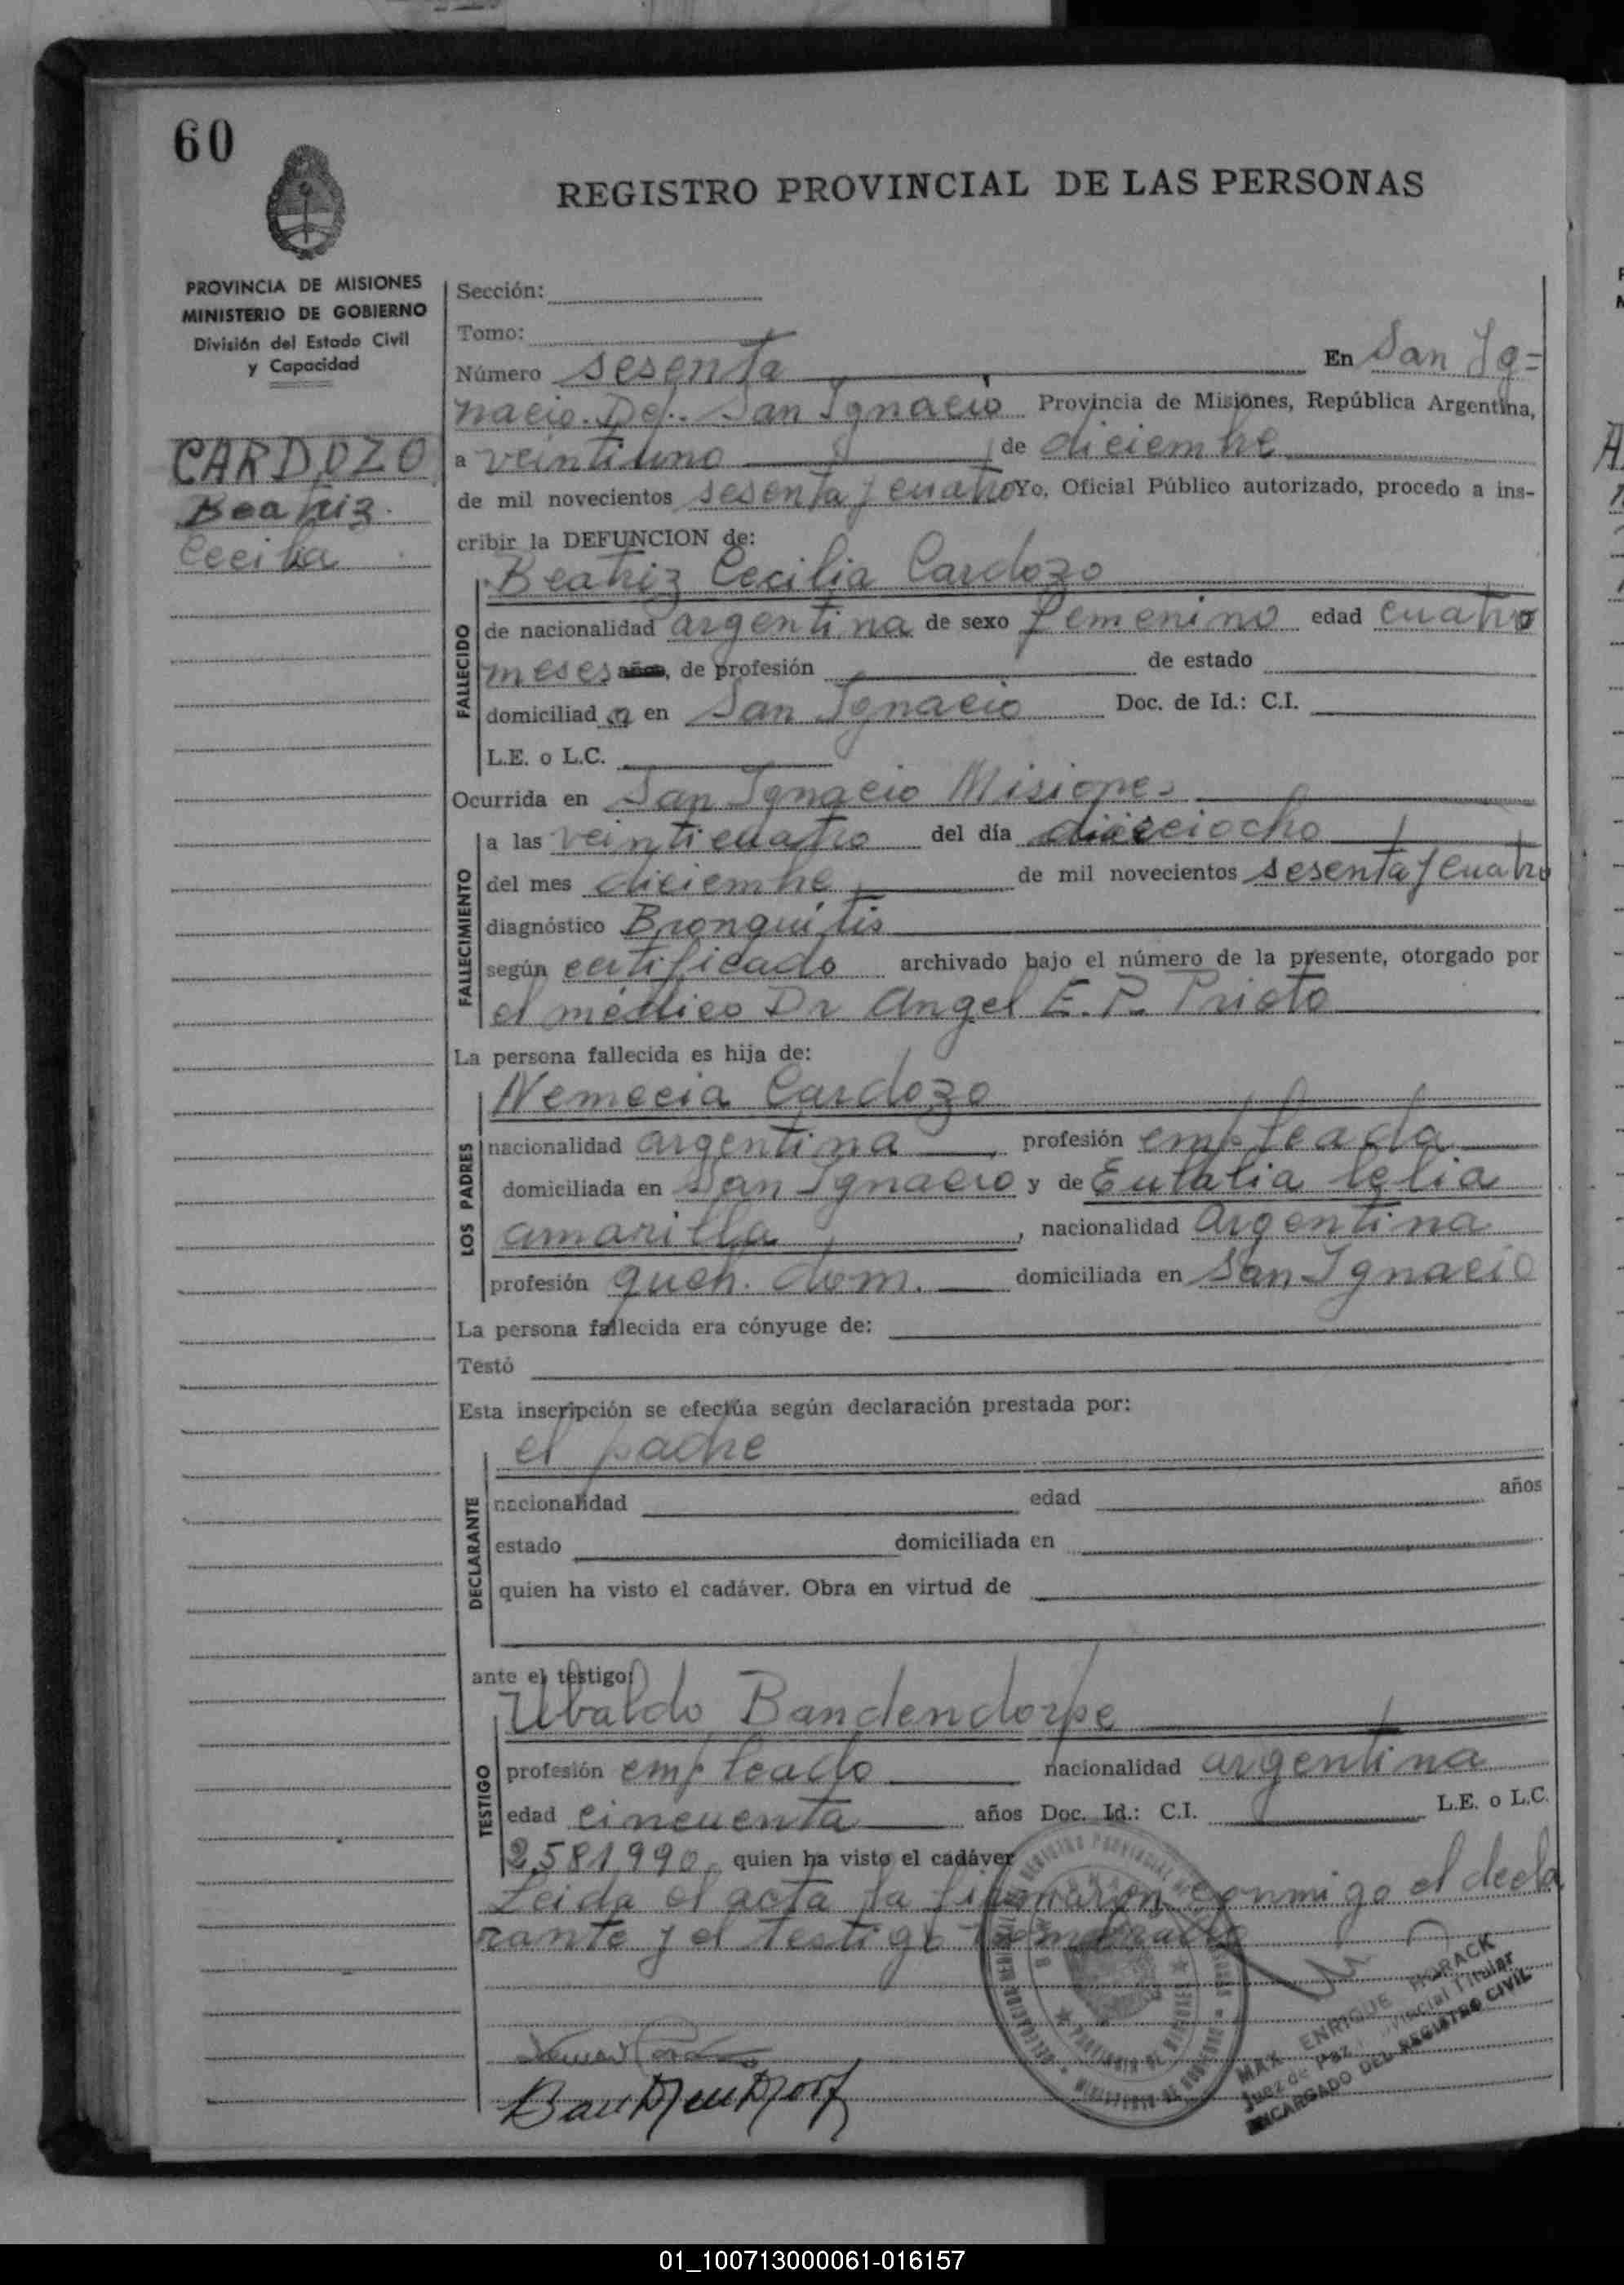 60
REGISTRO PROVINCIAL DE LAS PERSONAS
PROVINCIA DE MISIONES
MINISTERIO DE GOBIERNO
División del Estado Civil
y Capacidad
CARDOZO
Beatriz
Cecilia
Sección:
Tomo:
Número sesenta En San Ig=
nacio. Del.. San Ignacio Provincia de Misiones, República Argentina,
a veintiuno de diciembre
de mil novecientos sesenta y cuatro Yo, Oficial Público autorizado, procedo a ins-
cribir la DEFUNCION de:
FALLECIDO
Beatriz Cecilia Cardozo
de nacionalidad argentina de sexo femenino edad cuatro
meses años, de profesión de estado
domiciliad a en San Ignacio Doc. de Id.: C.I.
L.E. o L.C.
Ocurrida en San Ignacio Misiones
FALLECIMIENTO
a las veinticuatro del día dieciocho
del mes diciembre de mil novecientos sesenta y cuatro
diagnóstico Bronquitis
según certificado archivado bajo el número de la presente, otorgado por
el médico Dr Angel E. P. Prieto
La persona fallecida es hija de:
LOS PADRES
Nemecia Cardozo
nacionalidad argentina, profesión empleada
domiciliada en San Ignacio y de Eulalia Lelia
amarilla, nacionalidad Argentina
profesión queh. dom. domiciliada en San Ignacio
La persona fallecida era cónyuge de:
Testó
Esta inscripción se efectúa según declaración prestada por:
DECLARANTE
el padre
nacionalidad edad años
estado domiciliada en
quien ha visto el cadáver. Obra en virtud de
ante el testigo
TESTIGO
Ubaldo Bandendorpe
profesión empleado nacionalidad argentina
edad cincuenta años Doc. Id.: C.I. L.E. o L.C.
2.581.990, quien ha visto el cadáver
Leida el acta la firmaron conmigo el decla
rante y el testigo nombrado
MAX ENRIQUE HORACK
Juez de Paz Provincial Titular
ENCARGADO DEL REGISTRO CIVIL
01_100713000061-016157